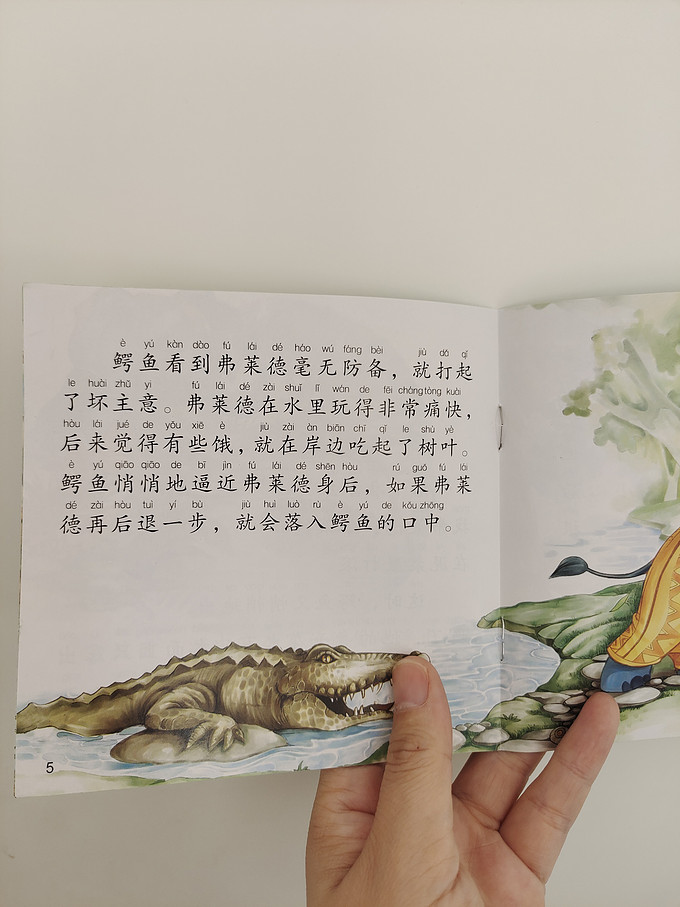 è yú kàn dào fú lái dé háo wú fáng bèi jiù dǎ qǐ
鳄鱼看到弗莱德毫无防备，就打起
le huài zhǔ yi fú lái dé zài shuǐ lǐ wán de fēi cháng tòng kuài
了坏主意。弗莱德在水里玩得非常痛快，
hòu lái jué de yǒu xiē è jiù zài àn biān chī qǐ le shù yè
后来觉得有些饿，就在岸边吃起了树叶。
è yú qiāo qiāo de bī jìn fú lái dé shēn hòu rú guǒ fú lái
鳄鱼悄悄地逼近弗莱德身后，如果弗莱
dé zài hòu tuì yí bù jiù huì luò rù è yú de kǒu zhōng
德再后退一步，就会落入鳄鱼的口中。
5